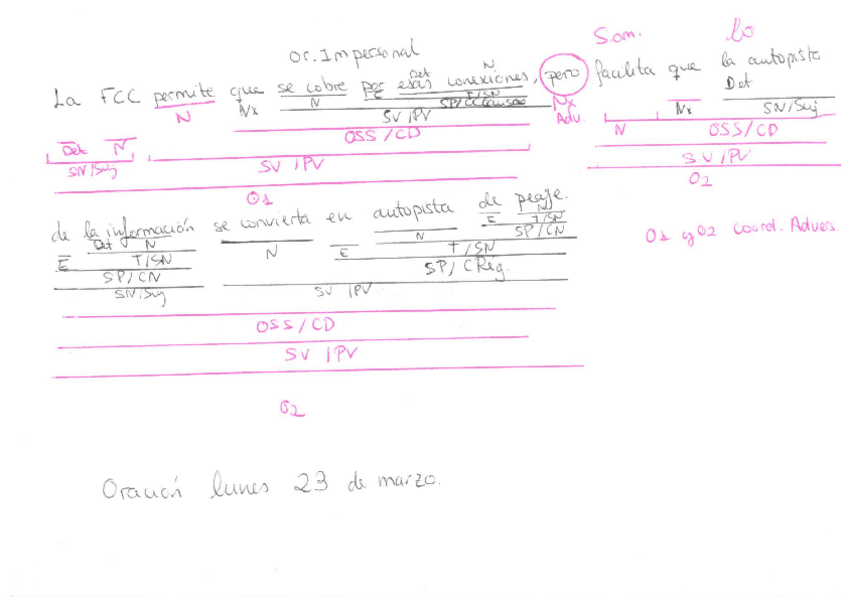 S.om. lo
Or. Impersonal
La FCC permite que se cobre por esas conexiones, pero facilita que la autopista
Det N Det
N Nx N E T/SN Nx Nx SN/Suj
SP/CCCausa Adv.
SV/PV
Det N OSS/CD N OSS/CD
SN/Suj SV/PV SV/PV
O1 O2
de la información se convierta en autopista de peaje.
Det N E N
E T/SN N E N T/SN
SP/CN SP/CN
SN/Suj T/SN
SP/CRég.
SV/PV
O1 y O2 coord. Advers.
OSS/CD
SV/PV
O2
Oración lunes 23 de marzo.